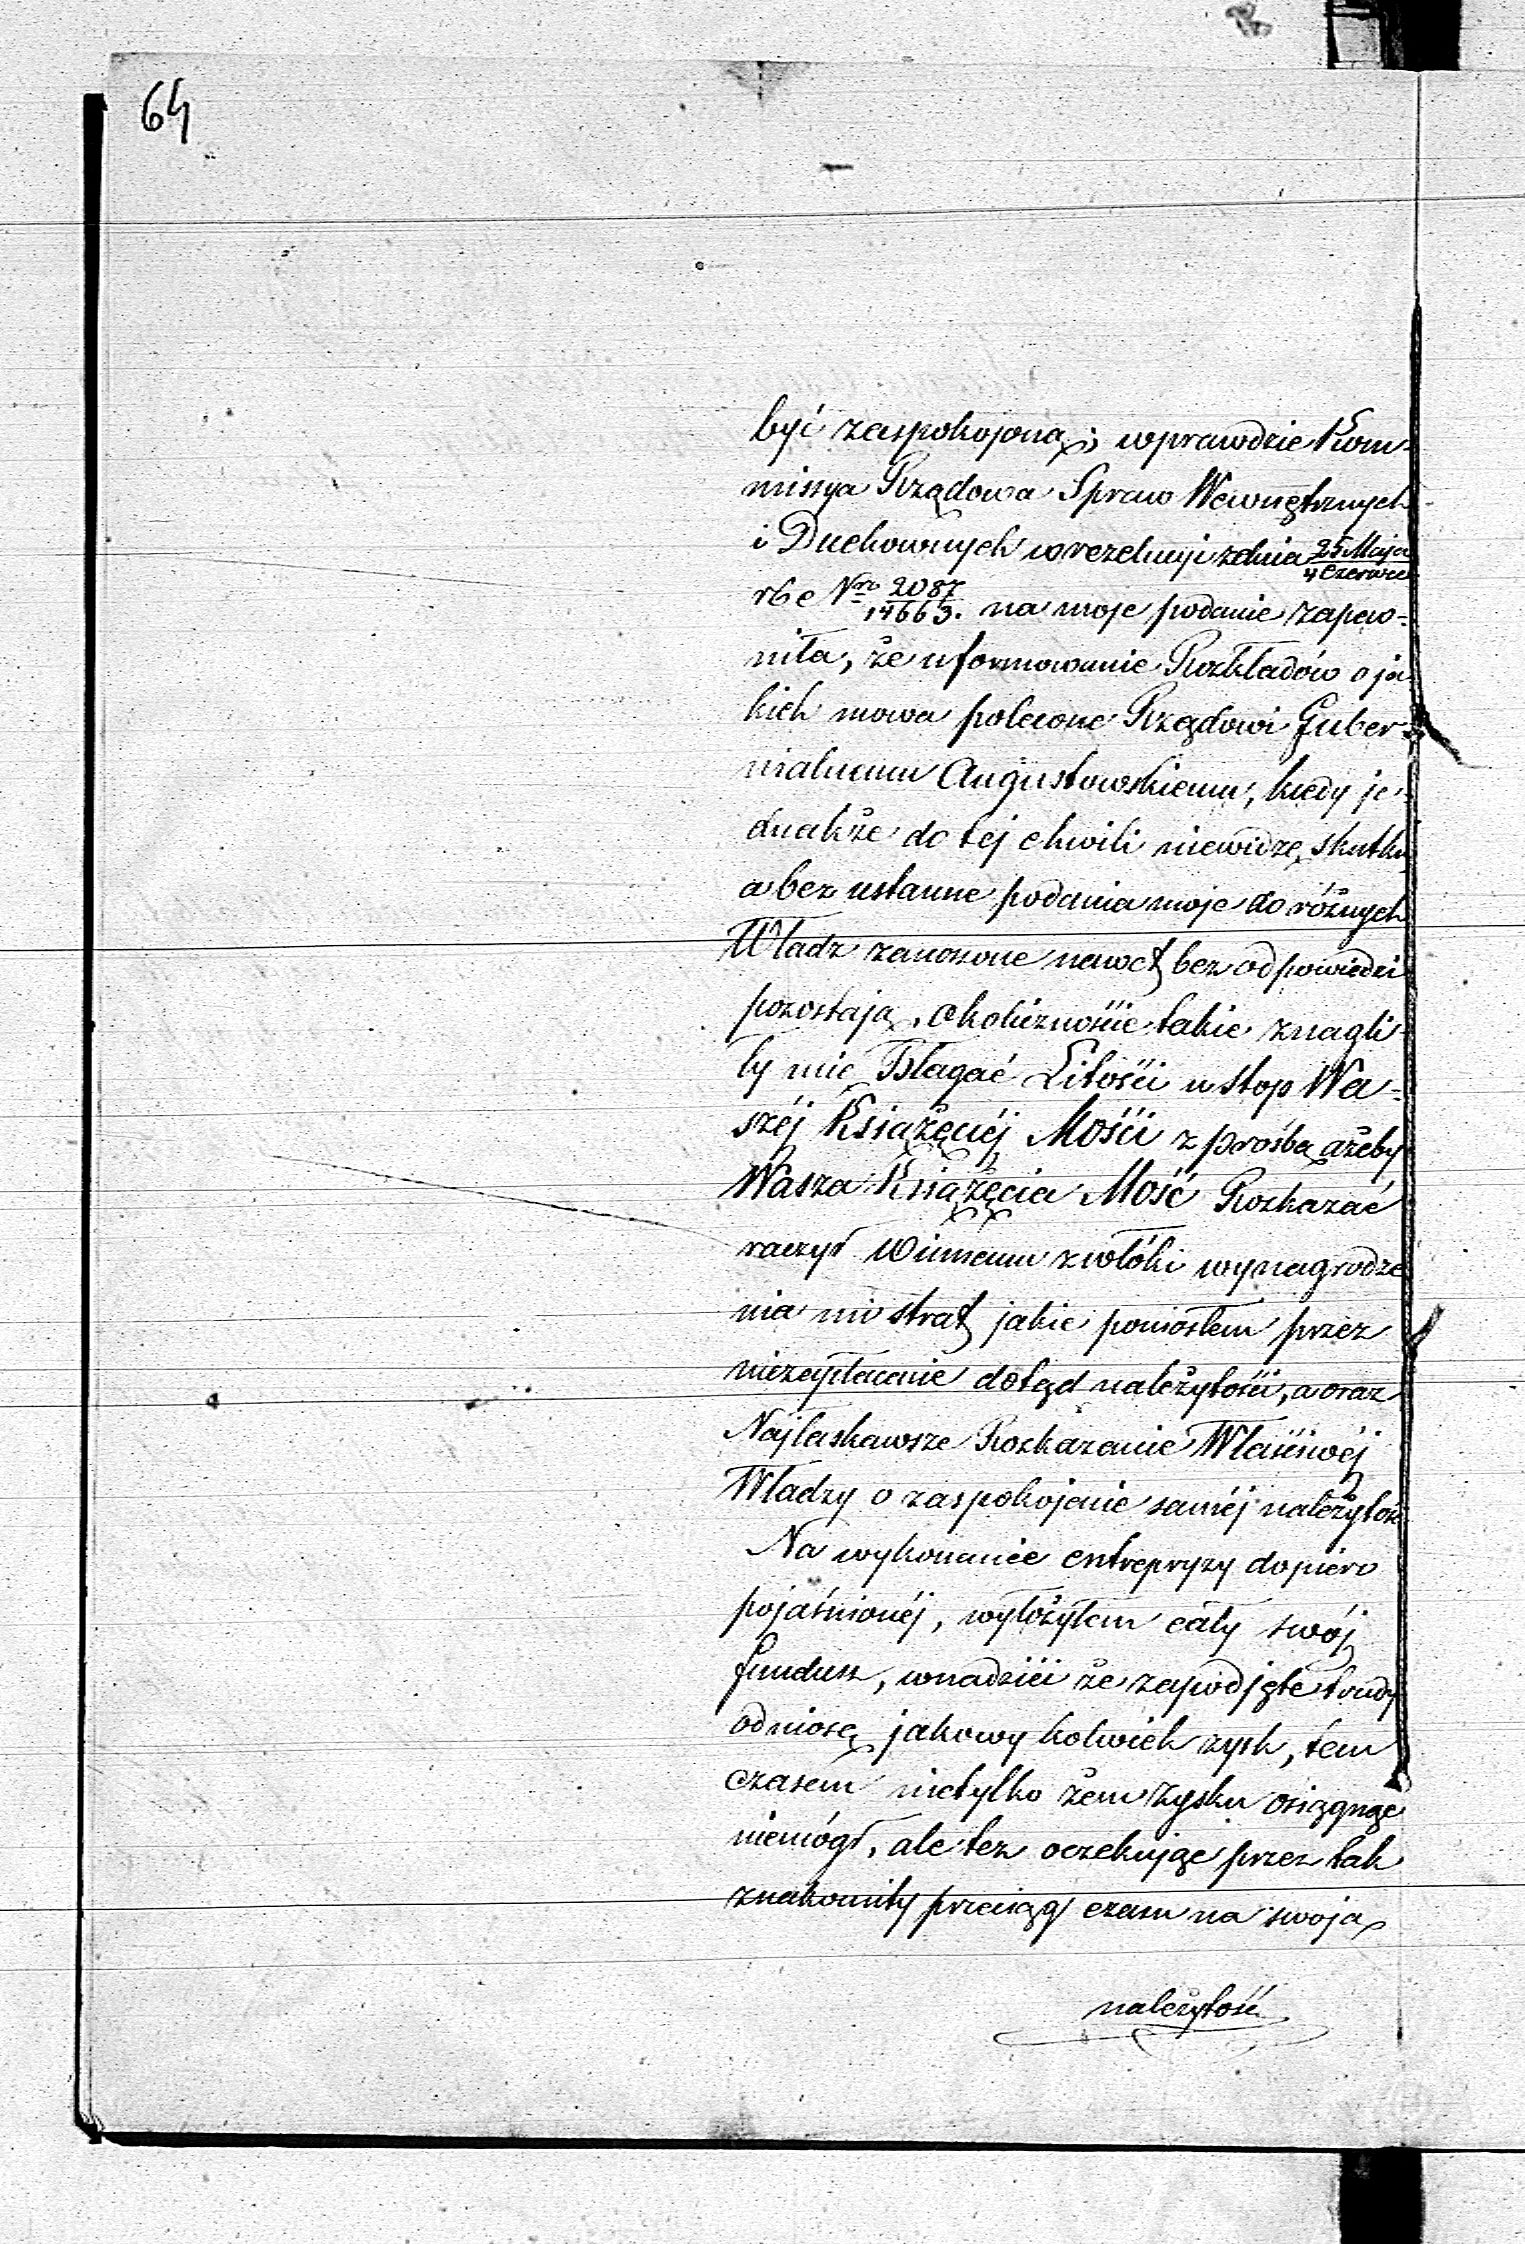 64
być zaspokojoną; wprawdzie Kom-
missya Rządowa Spraw Wewnętrznych
i Duchownych w rezolucyi z dnia 25 Maja / 4 Czerwca
rb e Nro 2087 / 14663. na moje podanie zapew-
niła, że uformowanie Rozkładów o ja-
kich mowa polecone Rządowi Guber-
nialnemu Augustowskiemu, kiedy je-
dnakże do tej chwili niewidzę skutku
a bez ustanne podania moje do różnych
Władz zanoszone nawet bez odpowiedzi
pozostają, okoliczności takie znagli-
ły mię Błagać Litości u stop Wa-
széj Książęcéj Mości z prośbą ażeby
Wasza Książęcia Mość Rozkazać
raczył Winnemu zwłóki wynagrodze
nia mi strat jakie poniosłem przez
niezapłacenie dotąd należytości, a oraz
Najłaskawsze Rozkazanie Właściwéj
Władzy o zaspokojenie saméj należytoś
Na wykonanie entrepryzy dopiero
pojaśnionéj, wyłożyłem cały swój
fundusz, wnadziei że zapodjęte trudy
odniosę jakowy kolwiek zysk, tem
czasem nietylko żem zysku osiągnąć
niemógł, ale też oczekując przez tak
znakomity przeciąg czasu na swoją
należytość